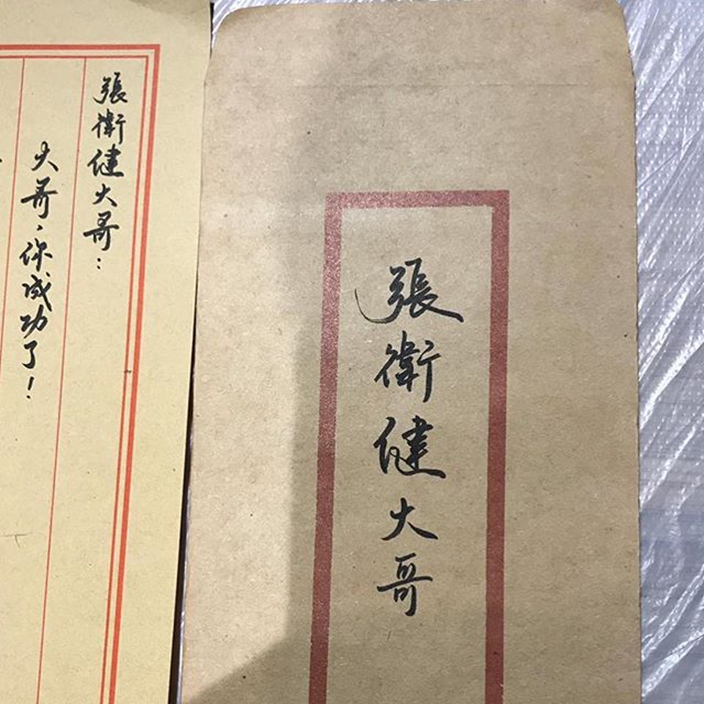 張衛健大哥：
大哥，你成功了！
張衛健大哥